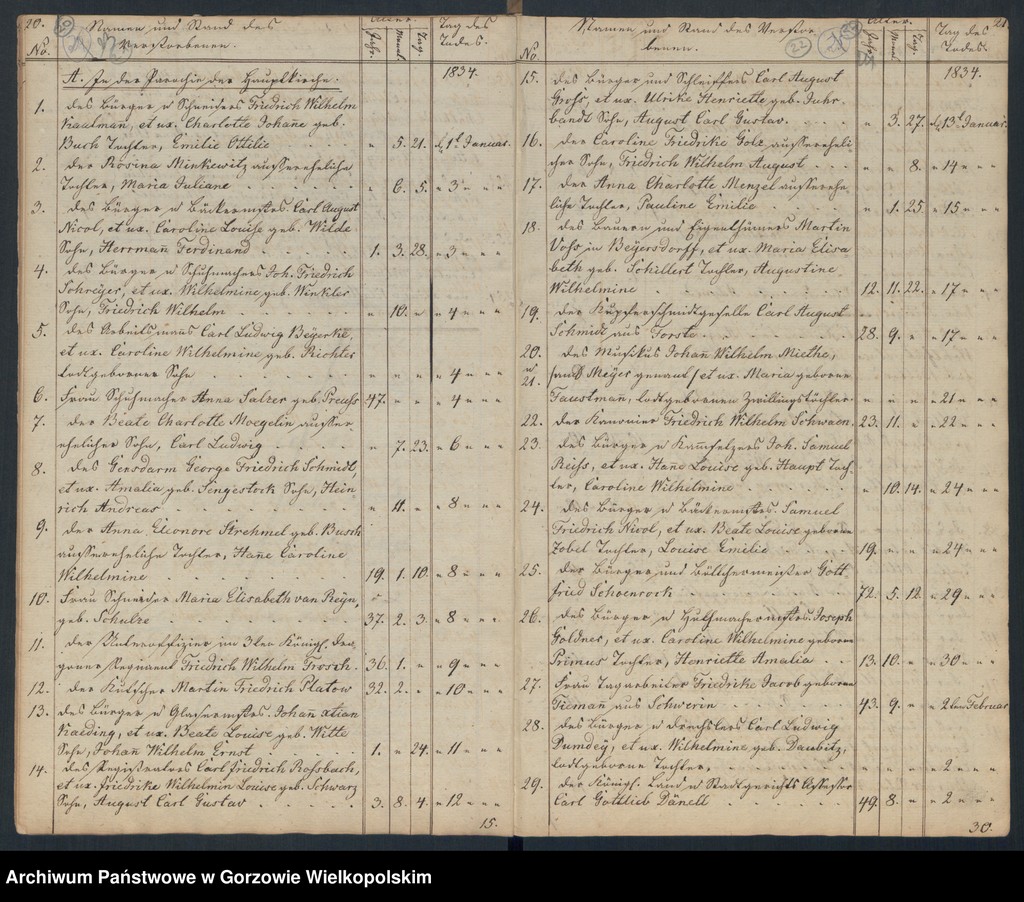 20.
Namen und Stand des
Verstorbenen.
No.
Alter.
Jahr. Monat. Tag.
Tag des
Todes.
A. In der Parochie der Hauptkirche.
1834.
1. des Bürger u Schneiders Friedrich Wilhelm
Kaulman, et ux. Charlotte Johane geb.
Buch Tochter, Emilie Ottilie " 5. 21. d. 1t. Januar.
2. der Rosina Minkewitz außereheliche
Tochter, Maria Juliane " 6. 5. " 3 " " "
3. des Bürger u Bäckermstrs. Carl August
Nicol, et ux. Caroline Louise geb. Wilde
Sohn, Herrman Ferdinand 1. 3. 28. " 3 " " "
4. des Bürger u Schuhmachers Joh. Friedrich
Schreyer, et ux. Wilhelmine geb. Winkler
Sohn, Friedrich Wilhelm " 10. " " 4 " " "
5. des Arbeitsmans Carl Ludwig Beyerke,
et ux. Caroline Wilhelmine geb. Richter
todtgeborner Sohn " " " " 4 " " "
6. Frau Schuhmacher Anna Salzer geb. Preuss 47. " " " 4 " " "
7. der Beate Charlotte Moegelin außer-
ehelicher Sohn, Carl Ludwig " 7. 23. " 6 " " "
8. des Gensdarm George Friedrich Schmidt,
et ux. Amalia geb. Sengestock Sohn, Hein
rich Andreas " 11. " " 8 " " "
9. der Anna Eleonore Strehmel geb. Busch
außereheliche Tochter, Hane Caroline
Wilhelmine 19. 1. 10. " 8 " " "
10. Frau Schneider Maria Elisabeth van Reyn,
geb. Schulze 37. 2. 3. " 8 " " "
11. der Unteroffizier im 3ten Königl. Dra-
goner Regiment Friedrich Wilhelm Frosch. 36. 1. " " 9 " " "
12. der Kutscher Martin Friedrich Platow 32. 2. " " 10 " " "
13. des Bürger u Glasermstrs. Johan xtian
Kaeding, et ux. Beate Louise geb. Witte
Sohn, Johan Wilhelm Ernst 1. " 24. " 11 " " "
14. des Registrators Carl Friedrich Rossbach,
et ux. Friedrike Wilhelmin Louise geb. Schwarz
Sohn, August Carl Gustav 3. 8. 4. " 12 " " "
15.
21.
22
No.
Namen und Stand des Verstor
benen.
Alter.
Jahr. Monat. Tag.
Tag des
Todes.
1834.
15. des Bürger und Schleiffers Carl August
Gross, et ux. Ulrike Henriette geb. Fuhr-
bandt Sohn, August Carl Gustav " 3. 27. d. 13t Januar.
16. der Caroline Friedrike Golz außereheli
cher Sohn, Friedrich Wilhelm August " " 8. " 14 " "
17. der Anna Charlotte Menzel außerehe
liche Tochter, Pauline Emilie " 1. 25. " 15 " "
18. des Bauern und Eigenthümers Martin
Voss in Beyersdorff, et ux. Maria Elisa
beth geb. Schillert Tochter, Augustine
Wilhelmine 12. 11. 22. " 17 " "
19. der Kupferschmidtgeselle Carl August
Schmidt aus Forste 28. 9. " " 17 " "
20. des Musikus Johan Wilhelm Miethe,
u
21. Meyer genannt / et ux. Maria geborne
Faustman, todtgebornen Zwillingstöchter " " " " 21 " "
22. der Kanonier Friedrich Wilhelm Schwaen. 23. 11. " " 22 " "
23. des Bürger u Kamsetzers Joh. Samuel
Reiss, et ux. Hane Louise geb. Haupt Toch-
ter, Caroline Wilhelmine " 10. 14. " 24 " "
24. des Bürger u Bäckermstrs. Samuel
Friedrich Nicol, et ux. Beate Louise geborne
Zobel Tochter, Louise Emilie 19. " " " 24 " "
25. der Bürger und Böttchermeister Gott
fried Schoenrock 72. 5. 12. " 29 " "
26. des Bürger u Huthmachermstrs. Joseph
Goldner, et ux. Caroline Wilhelmine geborne
Primus Tochter, Henriette Amalia 13. 10. " " 30 " "
27. Frau Tagarbeiter Friedrike Jacob geborne
Tieman aus Schwerin 43. 9. " " 2ten Februar
28. des Bürger u Drechslers Carl Ludwig
Dumdey, et ux. Wilhelmine geb. Daubitz,
todtgeborne Tochter, " " " " 2 " "
29. der Königl. Land u Stadtgerichts Assessor
Carl Gottlieb Dänell 49. 8. " " 2 " "
30.
Archiwum Państwowe w Gorzowie Wielkopolskim